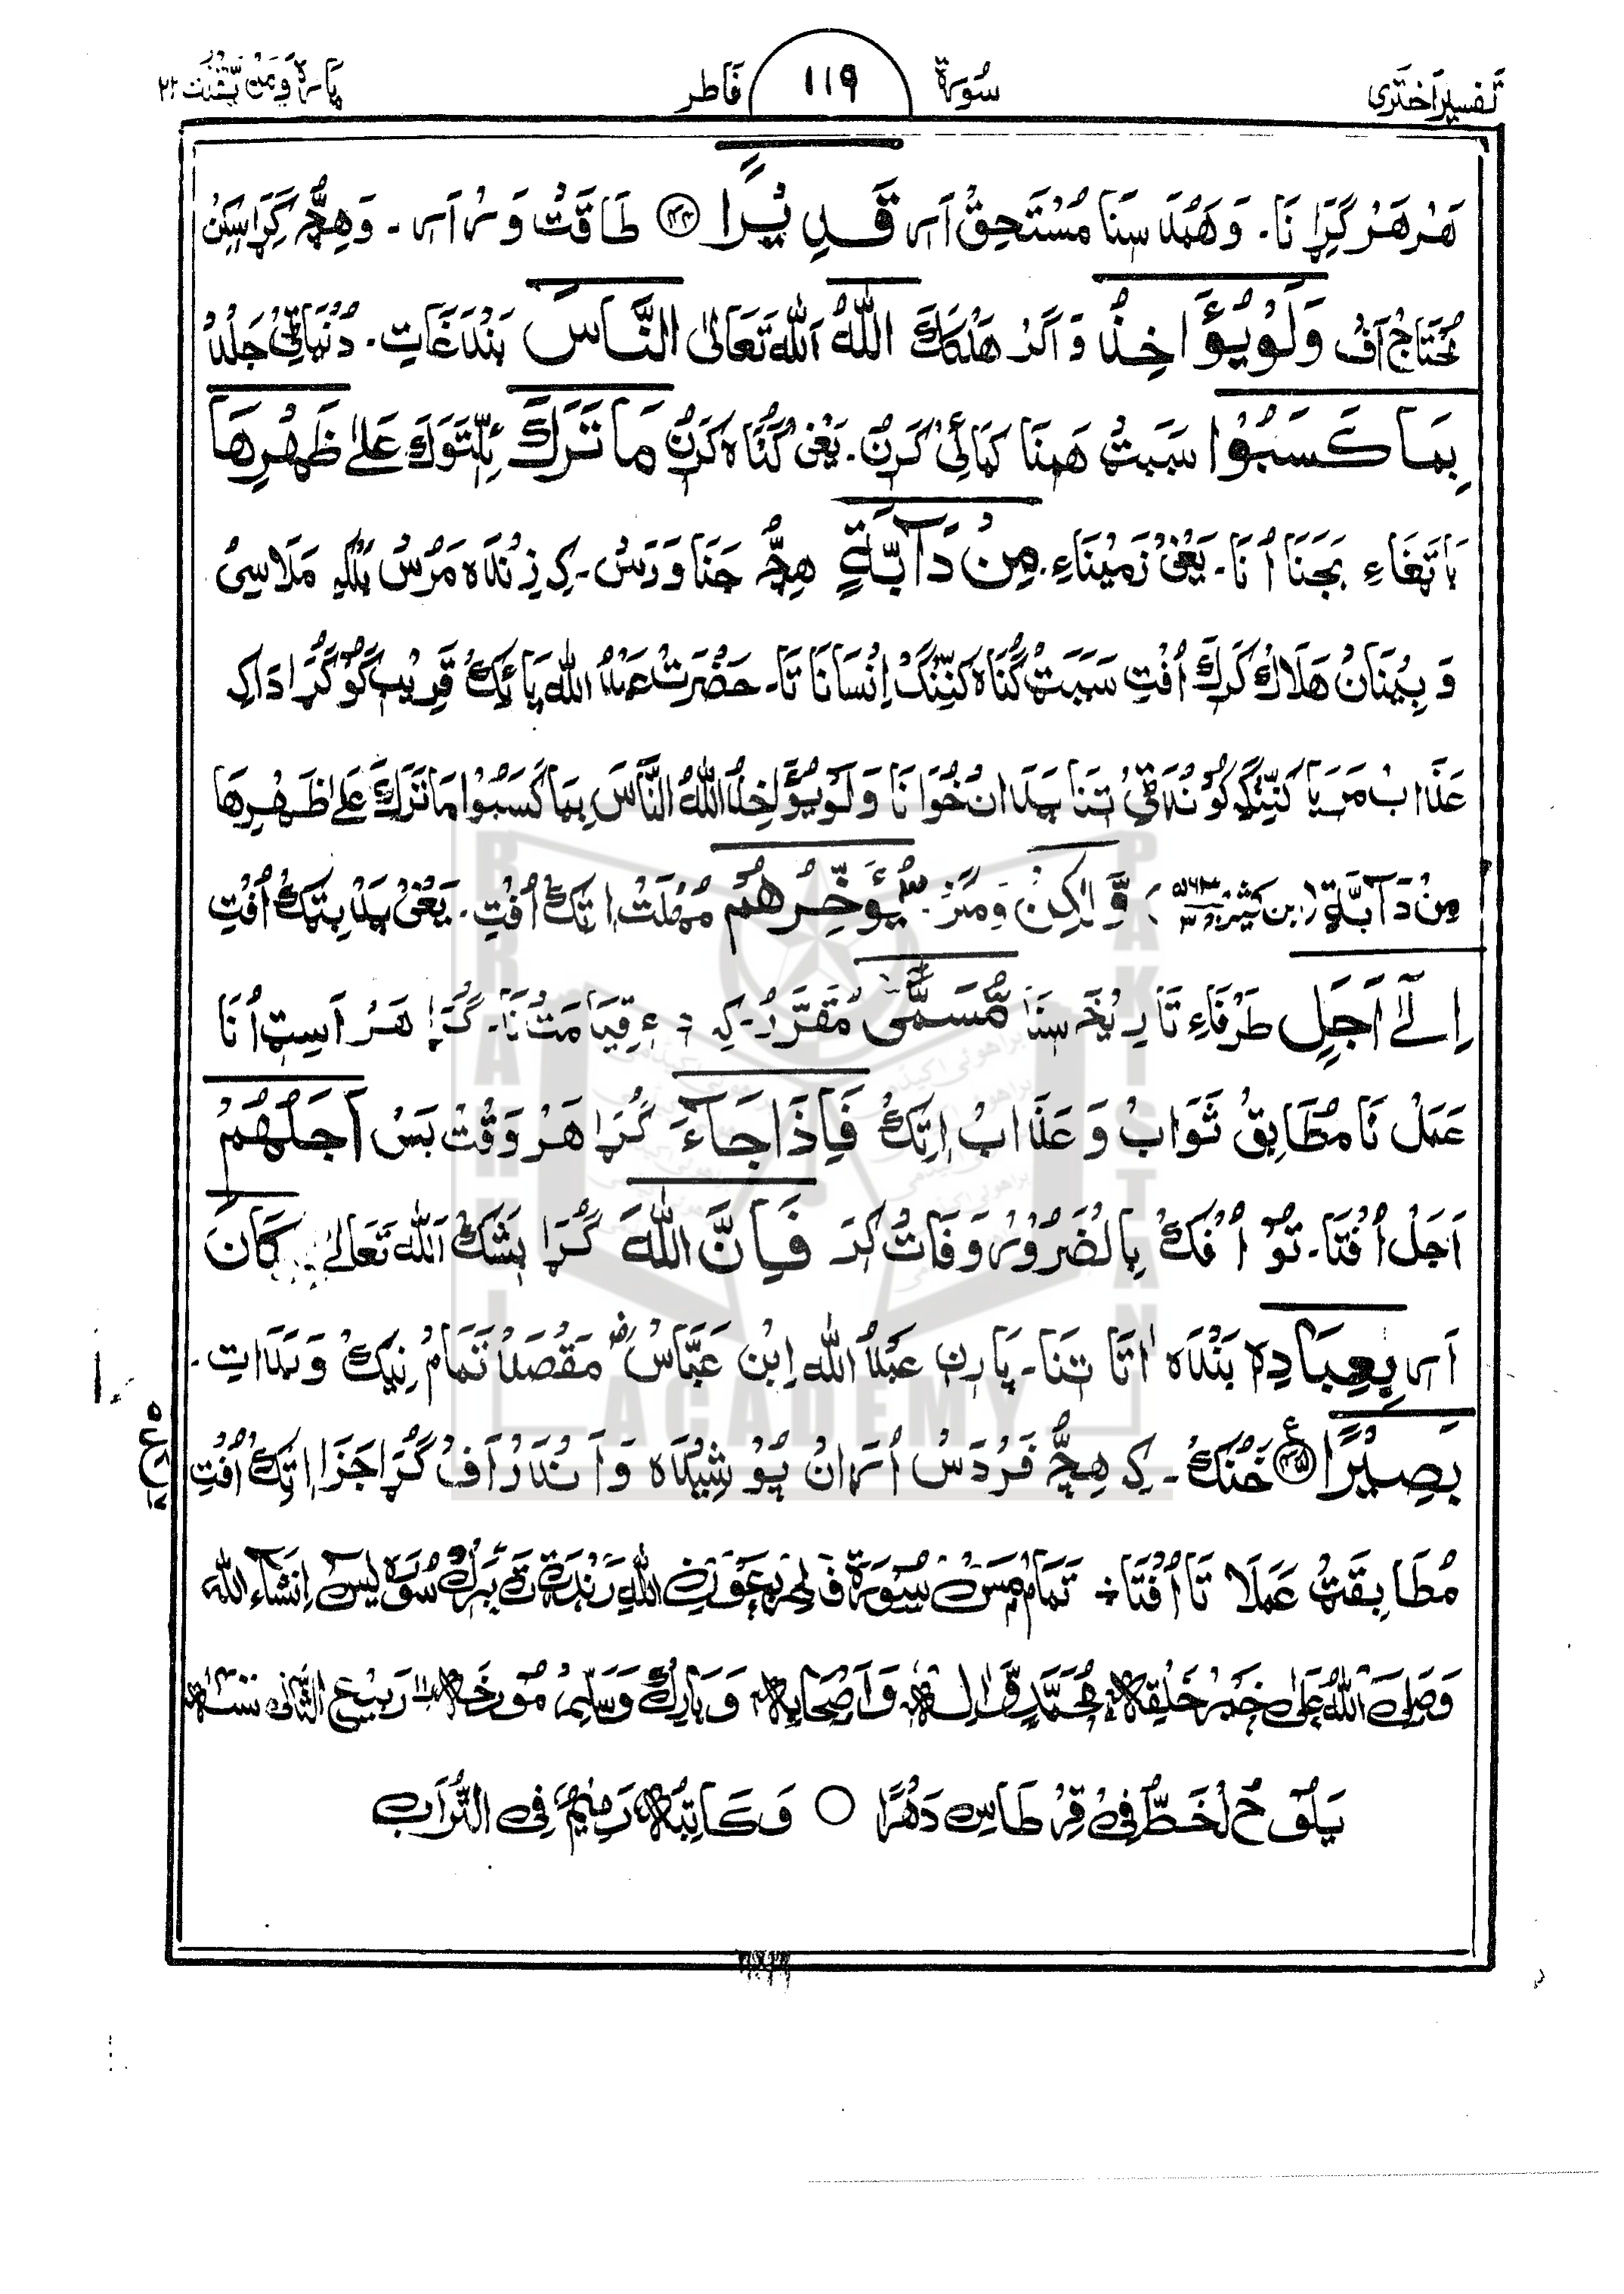 تفسیر اختری
سُورة ۱۱۹ فَاطر
پاره وَمَنْ يَّقْنُت ۲۲
هَرْ هَرْ گِرَا نَا۔ وَهَمْدَ سِنَا مُسْتَحِقْ اَرِ قَدِيْرًا ﴿۴۴﴾ طَاقَتْ وَرْ اَرِ ۔ وَهِچّ گِرَا سِکِنْ
مُحْتَاجْ اَفْ وَلَوْ يُؤَاخِذُ وَ اَگَرْ هَلْکَکْ اللّٰهُ اَللّٰه تَعَالٰی النَّاسَ بَنْدَغَاتِ ۔ دُنْیَاٹِی جَلْدْ
بِمَا كَسَبُوْا سَبَبَٹْ هَمْنَا كَمَائِی کَرِنْ ۔ یَعْنِی گُنَاه کَرِنْ مَا تَرَكَ اِلَّتَوَكَ عَلٰى ظَهْرِهَا
بَا تَغَاءِ بَجَنَا اُنَا ۔ یَعْنِی زَمِیْنَاءِ ۔ مِنْ دَآبَّةٍ هِچّ جَنَاوَرَسْ ۔ کِ زِنْدَه مَرْسْ بَلْکِ مَلَاسِی
وَ بِیْمَنَانْ هَلَاكْ کَرَكَ اُفْتِ سَبَبَٹْ گُنَاه کَنِنْگْ اِنْسَانَا تَا ۔ حَضْرَتْ عَبْدُ اللّٰه پَائِكْ قَرِیْب گُو گُرَادَا کِ
عَذَابْ مَرْ یَا کَنِنْگِ گُونْدَقِی تِنَا بِدَانْ خُوَانَا وَلَوْ يُؤَاخِذُ اللّٰهُ النَّاسَ بِمَا كَسَبُوْا مَا تَرَكَ عَلٰى ظَهْرِهَا
مِنْ دَآبَّةٍ (ابن کثیر) وَّلٰكِنْ وَمَگَرْ ۔ يُؤَخِّرُهُمْ مُهْلَتْ اِتِكْ اُفْتِ ۔ یَعْنِی یَدْ بِتِكْ اُفْتِ
اِلٰٓى اَجَلٍ طَرْفَاءِ تَارِیْخَ سِنَا مُّسَمًّى مُقَرَّرْ ۔ کِ دٓءِ قِیَامَتْ نَا ۔ گُرَا هَرْ اَسِٹ اُنَا
عَمَلْ نَا مُطَابِقْ ثَوَابْ وَ عَذَابْ اِتِكْ فَاِذَا جَآءَ گُرَا هَرْ وَقْتْ بَسْ اَجَلُهُمْ
اَجَلْ اُفْتَا ۔ تَوْ اُفْكْ بِالضَّرُوْرْ وَفَاتْ کَرِ فَاِنَّ اللّٰهَ گُرَا بَشَكْ اَللّٰه تَعَالٰی كَانَ
اَرِ بِعِبَادِهٖ بَنْدَه اٰتَا تِنَا ۔ پَارِنْ عَبْدُ اللّٰه اِبْن عَبَّاسْ مَقْصَدْ تَمَامْ نِیْكْ وَبَدَاتِ ۔
بَصِيْرًا ﴿۴۵﴾ خَنْكْ ۔ کِ هِچّ فَرْدَسْ اُرَانْ پُوْشِیْدَه وَ اَنْدَرْ اَفْ گُرَا جَزَا اِتِكْ اُفْتِ
مُطَابِقَٹْ عَمَلَا تَا اُفْتَا ۔ تَمَامْ مَسْ سُوْرَة فَاطِر بِعَوْنِ اللّٰهِ رَنْدَٹْ تَبَرْكْ سُورَه یٰسٓ اِنْشَاءَ اللّٰه
وَصَلَّى اللّٰهُ عَلٰى خَيْرِ خَلْقِهٖ مُحَمَّدٍ وَّاٰلِهٖ وَاَصْحَابِهٖ وَبَارِكْ وَسَلِّمْ مُوَرَّخَه ۱۱ رَبِیْع الثَّانِی
يَلُوْحُ لْخَطُّ فِیْ قِرْطَاسِ دَهْرًا ○ وَكَاتِبُهٗ رَمِيْمٌ فِی التُّرَابِ
BRAHUI
ACADEMY
PAKISTAN